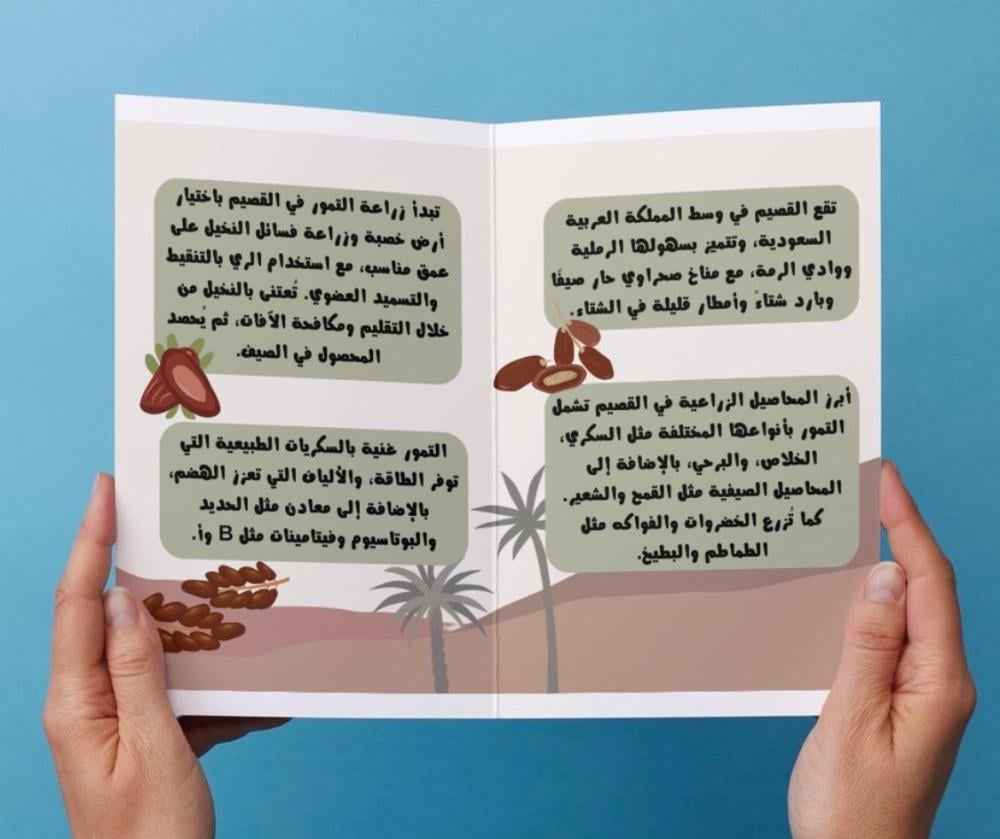 تقع القصيم في وسط المملكة العربية
السعودية، وتتميز بسهولها الرملية
ووادي الرمة، مع مناخ صحراوي حار صيفًا
وبارد شتاءً وأمطار قليلة في الشتاء.
أبرز المحاصيل الزراعية في القصيم تشمل
التمور بأنواعها المختلفة مثل السكري،
الخلاص، والبرحي، بالإضافة إلى
المحاصيل الصيفية مثل القمح والشعير.
كما تُزرع الخضروات والفواكه مثل
الطماطم والبطيخ.
تبدأ زراعة التمور في القصيم باختيار
أرض خصبة وزراعة فسائل النخيل على
عمق مناسب، مع استخدام الري بالتنقيط
والتسميد العضوي. تُعتنى بالنخيل من
خلال التقليم ومكافحة الآفات، ثم يُحصد
المحصول في الصيف.
التمور غنية بالسكريات الطبيعية التي
توفر الطاقة، والألياف التي تعزز الهضم،
بالإضافة إلى معادن مثل الحديد
والبوتاسيوم وفيتامينات مثل B وأ.